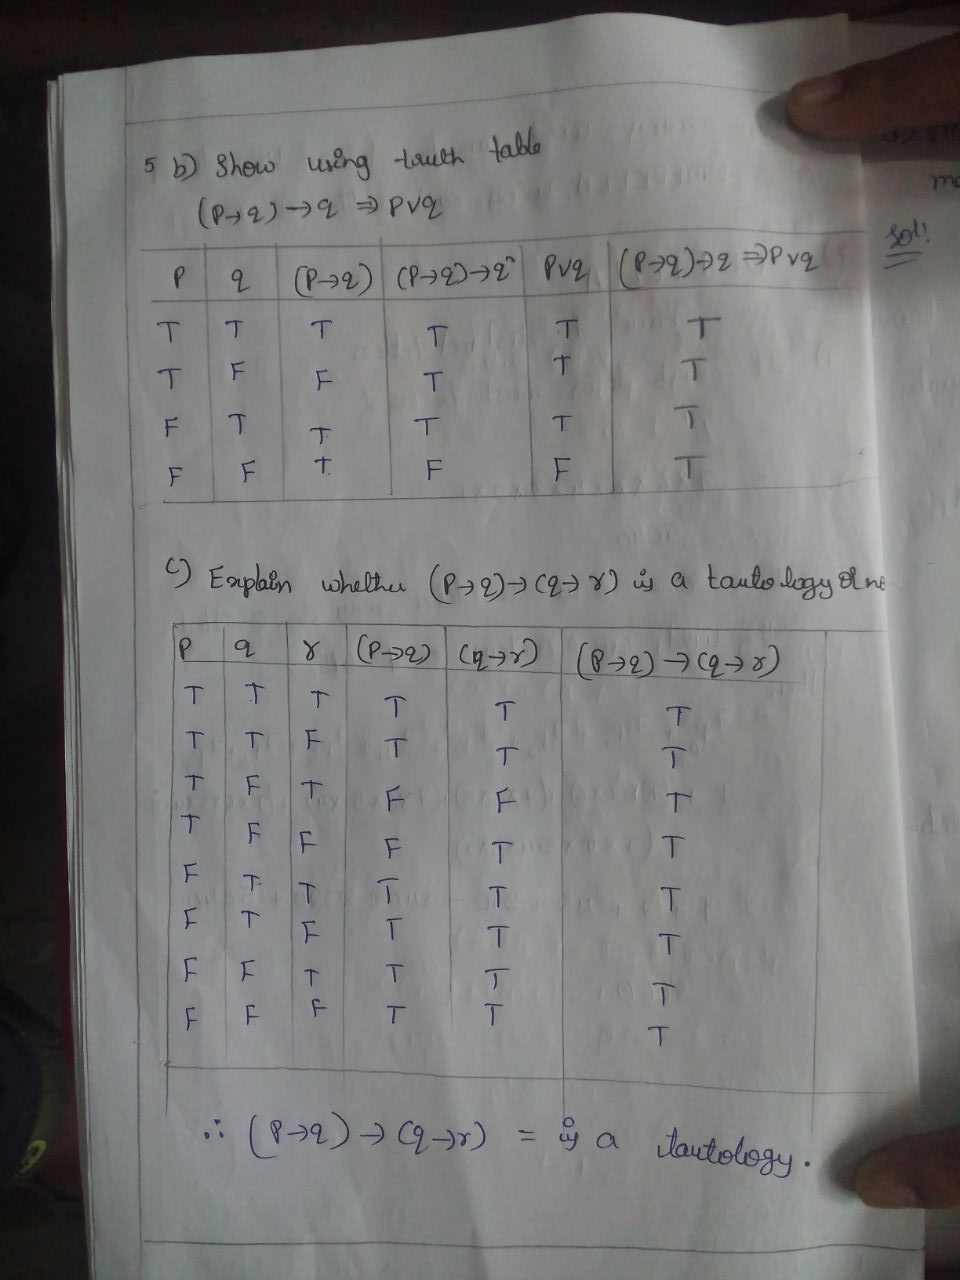 5 b) Show using truth table
(P→q)→q ⇒ P∨q
P q (P→q) (P→q)→q P∨q (P→q)→q ⇒P∨q
T T T T T T
T F F T T T
F T T T T T
F F T F F T
c) Explain whether (P→q)→(q→r) is a tautology or no
P q r (P→q) (q→r) (P→q)→(q→r)
T T T T T T
T T F T T T
T F T F F T
T F F F T T
F T T T T T
F T F T T T
F F T T T T
F F F T T T
∴ (P→q)→(q→r) = is a tautology.
Sol: